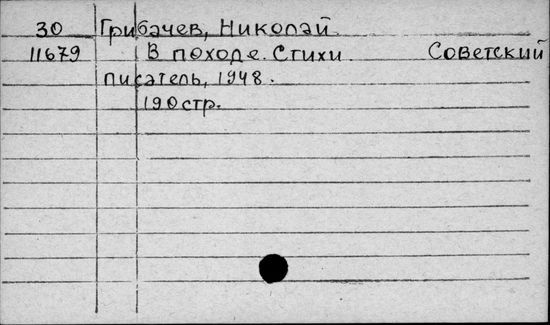 30 Грибачев, Николай
11679 В походе. Стихи. Советский
писатель, 1948.
190стр.